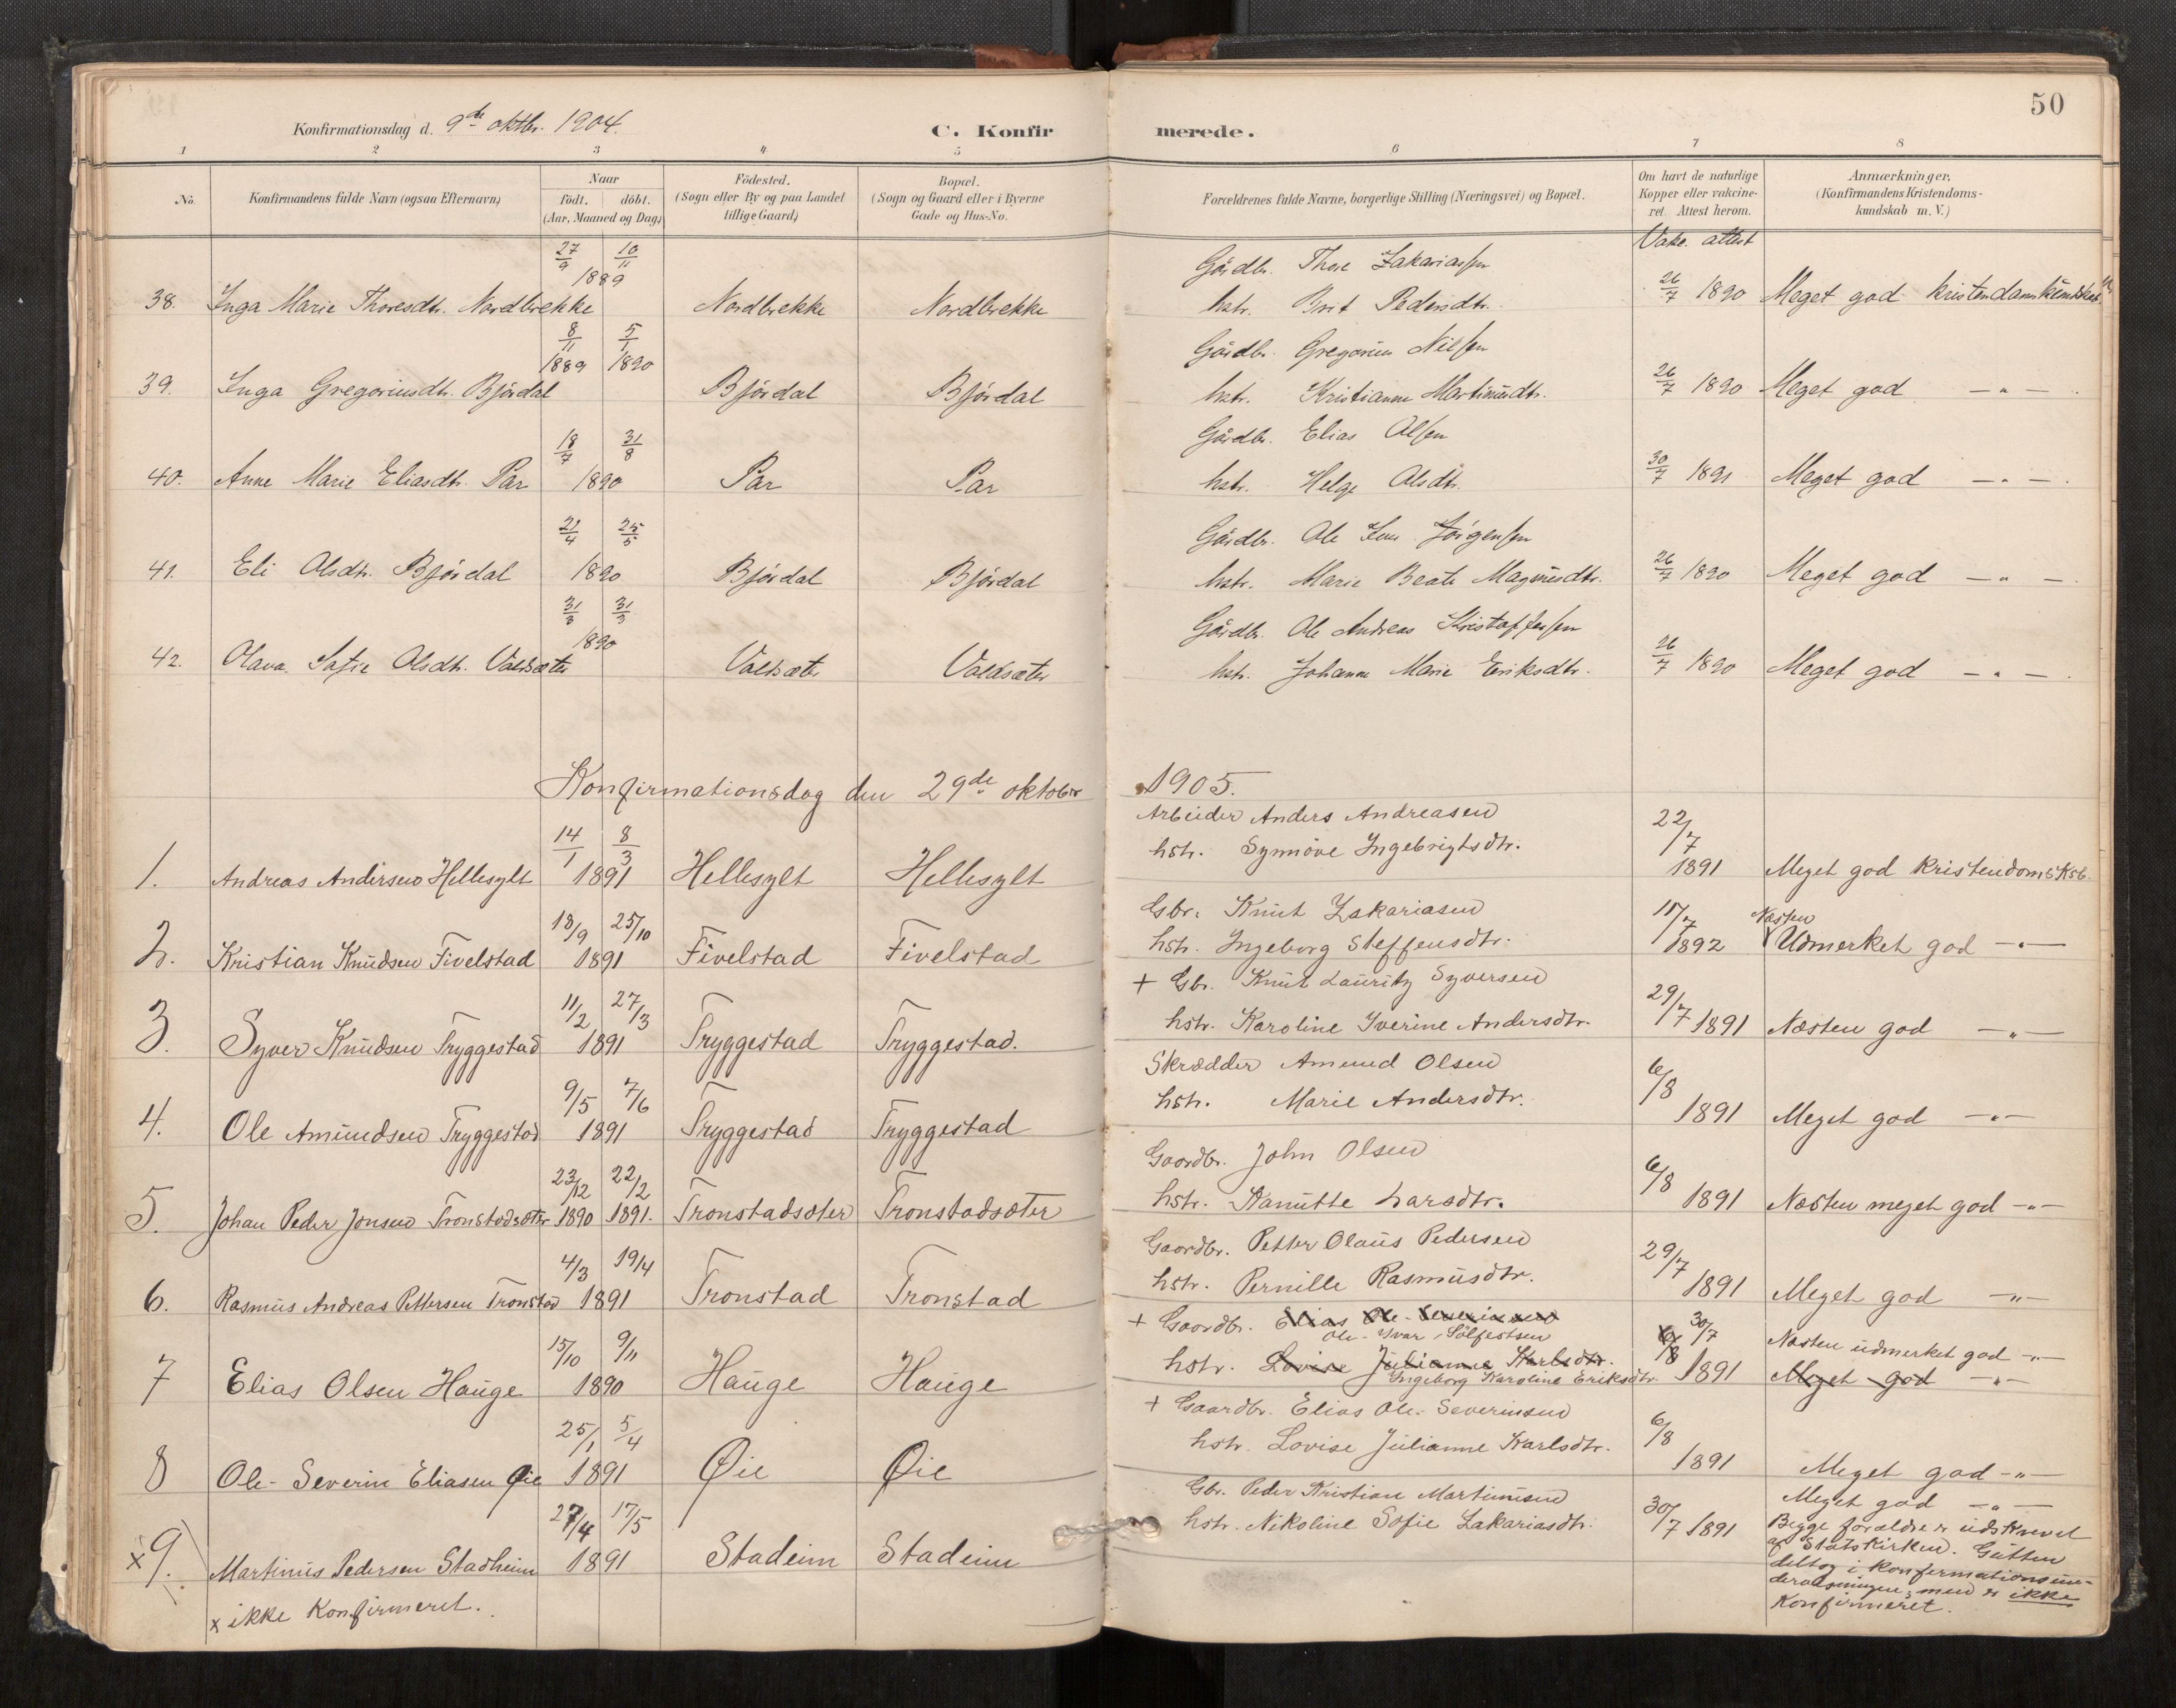 50
Konfirmationsdag d. 9de oktbr. 1904.
C. Konfirmerede.
1 2 3 4 5 6 7 8
No.
Konfirmandens fulde Navn (ogsaa Efternavn)
Naar
födt. döbt.
(Aar, Maaned og Dag)
Födested.
(Sogn eller By og paa Landet
tillige Gaard)
Bopæl.
(Sogn og Gaard eller i Byerne
Gade og Hus-No.
Forældrenes fulde Navne, borgerlige Stilling (Næringsvei) og Bopæl.
Om havt de naturlige
Kopper eller vakcine-
ret. Attest herom.
Anmærkninger,
(Konfirmandens Kristendoms-
kundskab m. V.)
Vakc. attest
27/9 10/11 Gårdbr. Thore Zakariassen
1889
38. Inga Marie Thoresdtr. Nordbrekke Nordbrekke Nordbrekke hstr. Brit Pedersdtr. 26/7 1890 Meget god kristendomskundskab
8/11 5/1 Gårdbr. Gregorius Nilssen
1889 1890
39. Inga Gregoriusdtr. Björdal Björdal Björdal hstr. Kristianne Martinusdtr. 26/7 1890 Meget god — " —
18/7 31/8 Gårdbr. Elias Olssen
40. Anne Marie Eliasdtr. Par 1890 Par Par hstr. Helge Olsdtr. 30/7 1891 Meget god — " —
21/4 25/5 Gårdbr. Ole Iver Jörgenssen
41. Eli Olsdtr. Björdal 1890 Björdal Björdal hstr. Marie Beate Magnusdtr. 26/7 1890 Meget god — " —
31/3 31/3 Gårdbr. Ole Andreas Kristofferssen
1890
42. Olava Sofie Olsdtr. Valdsæter Valdsæter Valdsæter hstr. Johanne Marie Eriksdtr. 26/7 1890 Meget god — " —
Konfirmationsdag den 29de oktober 1905.
14/1 8/3 Arbeider Anders Andreasen 22/7
hstr. Synnöve Ingebrigtsdtr.
1. Andreas Andersen Hellesylt 1891 Hellesylt Hellesylt 1891 Meget god kristendomsksb.
18/9 25/10 Gbr. Knut Zakariasen 15/7 Næsten
2. Kristian Knudsen Fivelstad 1891 Fivelstad Fivelstad hstr. Ingeborg Steffensdtr. 1892 Udmerket god — " —
11/2 27/3 + Gbr. Knut Lauritz Syversen 29/7
3. Syver Knudsen Tryggestad 1891 Tryggestad Tryggestad. hstr. Karoline Iverine Andersdtr. 1891 Næsten god — " —
9/5 7/6 Skrædder Amund Olsen 6/8
hstr. Marie Andersdtr.
4. Ole Amundsen Tryggestad 1891 Tryggestad Tryggestad 1891 Meget god — " —
23/12 22/2 Gaardbr. John Olsen 6/8
5. Johan Peder Jonsen Tronstadsæter 1890 1891. Tronstadsæter Tronstadsæter hstr. Hanutte Larsdtr. 1891 Næsten meget god — " —
4/3 19/4 Gaardbr. Petter Olaus Pedersen 29/7
hstr. Pernille Rasmusdtr.
6. Rasmus Andreas Pettersen Tronstad 1891 Tronstad Tronstad 1891 Meget god — " —
+ Gaardbr. Elias Ole-Severinsen
Ole-Ivar Sölfestsen 6/8 30/7 Næsten udmerket god — " —
15/10 9/11 hstr. Lovise Julianne Karlsdtr.
7 Elias Olsen Hauge 1890 Hauge Hauge Ingeborg Karoline Eriksdtr. 1891 Meget god — " —
25/1 5/4 + Gaardbr. Elias Ole-Severinsen 6/8
hstr. Lovise Julianne Karlsdtr.
8 Ole-Severin Eliasen Øie 1891 Øie Øie 1891 Meget god — " —
27/4 17/5 Gbr. Peder Kristian Martinusen Meget god — " —
hstr. Nikoline Sofie Zakariasdtr. 30/7 1891 Begge forældre er udskrevet
af Statskirken. Gutten
x 9. Martinus Pedersen Stadheim 1891 Stadeim Stadeim deltog i konfirmationsun-
dervisningen; men er ikke
x ikke Konfirmeret. Konfirmeret.